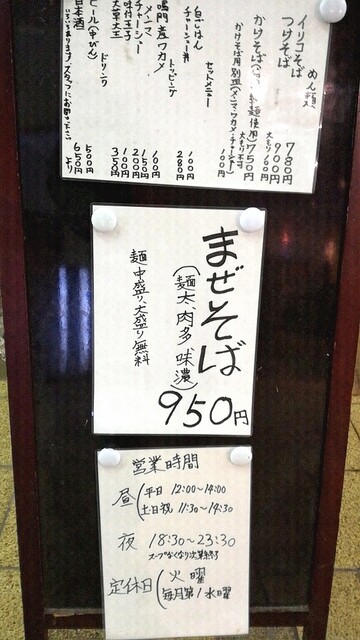 めん類
イリコそば 780円
つけそば 900円
大もり 100円
かけそば
大もり不可 750円
かけそば用別皿(メンマ、ワカメ、チャーシュー) 100円
セットメニュー
白ごはん 100円
チャーシュー丼 280円
トッピング
鳴門産ワカメ 100円
メンマ 150円
チャーシュー 200円
味付玉子 100円
ドリンク
ビール(中びん) 500円
日本酒 650円より
まぜそば
(麺太、肉多、味濃)
950円
麺中盛り、大盛り無料
営業時間
昼(平日 12:00~14:00
土・日・祝 11:30~14:30
夜 18:30~23:30
スープなくなり次第終了
定休日(火曜
毎月第1水曜